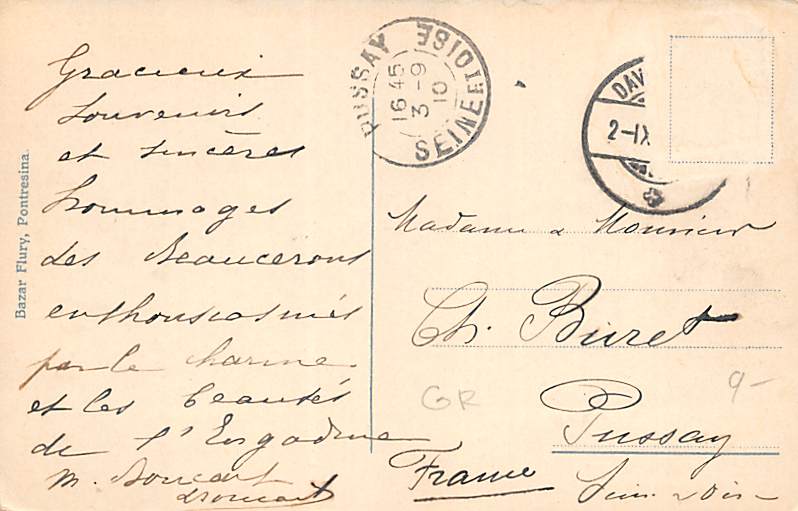 Gracieux
souvenirs
et sincères
hommages
des Beaucerons
enthousiasmés
par le charme
et les beautés
de l'Engadine
M. Boucart
Bazar Flury, Pontresina.
PUSSAY
16 45
3-9
10
SEINE ET OISE
DAV
2-IX
Madame & Monsieur
Ch. Buret
Pussay
Seine & Oise
France
GR
9-